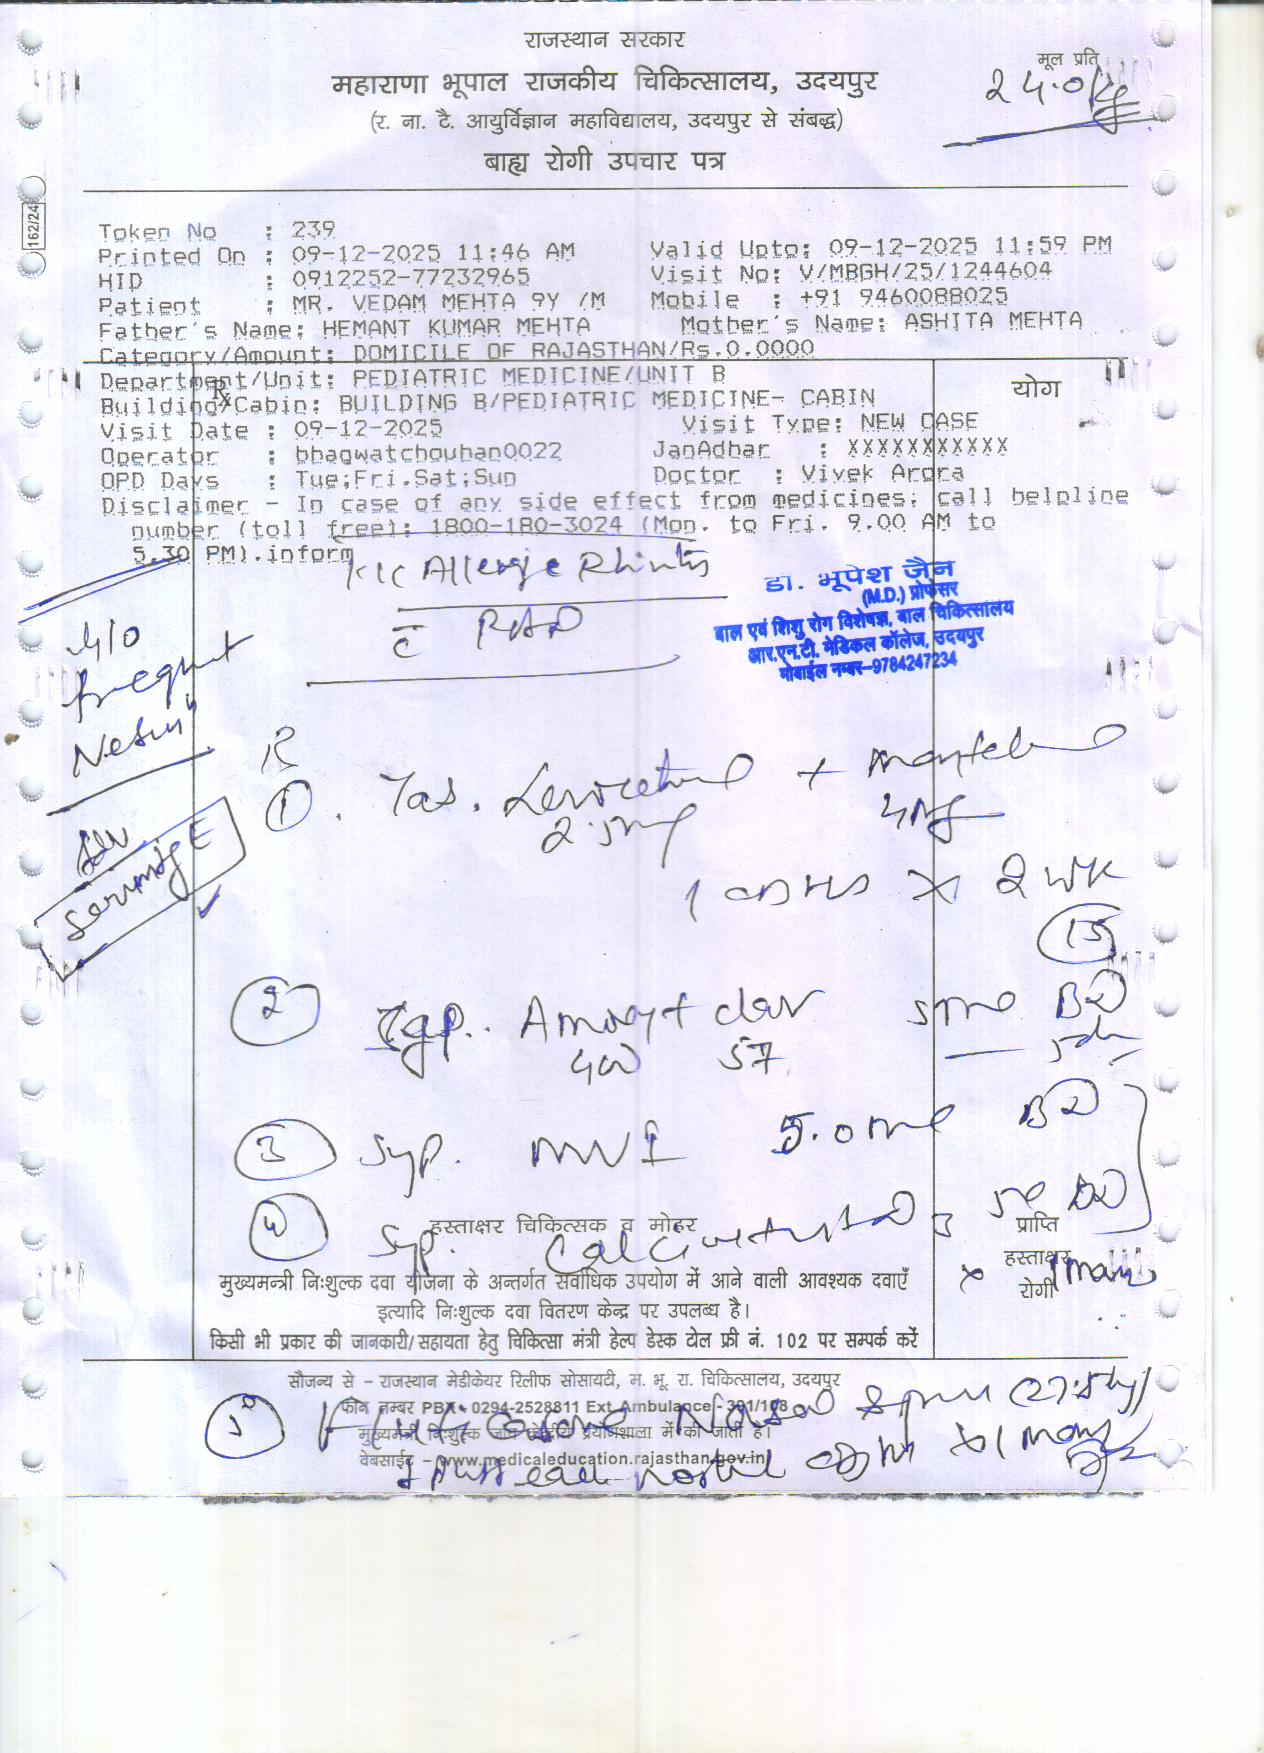 राजस्थान सरकार
मूल प्रति
महाराणा भूपाल राजकीय चिकित्सालय, उदयपुर
24.0 kg
(र. ना. टै. आयुर्विज्ञान महाविद्यालय, उदयपुर से संबद्ध)
बाह्य रोगी उपचार पत्र
162/24
Token No : 239
Printed On : 09-12-2025 11:46 AM Valid Upto: 09-12-2025 11:59 PM
HID : 0912252-77232965 Visit No: V/MBGH/25/1244604
Patient : MR. VEDAM MEHTA 9Y /M Mobile : +91 9460088025
Father's Name: HEMANT KUMAR MEHTA Mother's Name: ASHITA MEHTA
Category/Amount: DOMICILE OF RAJASTHAN/Rs.0.0000
Department/Unit: PEDIATRIC MEDICINE/UNIT B
योग
Rx
Building/Cabin: BUILDING B/PEDIATRIC MEDICINE- CABIN
Visit Date : 09-12-2025 Visit Type: NEW CASE
Operator : bhagwatchouhan0022 JanAdhar : XXXXXXXXXXX
OPD Days : Tue;Fri.Sat;Sun Doctor : Vivek Arora
Disclaimer - In case of any side effect from medicines, call helpline
number (toll free): 1800-180-3024 (Mon. to Fri. 9.00 AM to
5.30 PM).inform
K/C Allergic Rhinitis
c̄ RAD
डा. भूपेश जैन
(M.D.) प्रोफेसर
बाल एवं शिशु रोग विशेषज्ञ, बाल चिकित्सालय
आर.एन.टी. मेडिकल कॉलेज, उदयपुर
मोबाईल नम्बर–9784247234
H/O
frequent
Adv
Serum IgE
R
① Tab. +
2.5mg 4mg
1 HS x 2 wk
(15)
② Syp. Amoxy + clav 5ml BD
400 57 5d
③ Syp. MVI 5.0 ml BD
④ Syp. 5ml BD
हस्ताक्षर चिकित्सक व मोहर
प्राप्ति
हस्ताक्षर
रोगी
मुख्यमन्त्री निःशुल्क दवा योजना के अन्तर्गत सर्वाधिक उपयोग में आने वाली आवश्यक दवाएँ
इत्यादि निःशुल्क दवा वितरण केन्द्र पर उपलब्ध है।
किसी भी प्रकार की जानकारी/सहायता हेतु चिकित्सा मंत्री हेल्प डेस्क टोल फ्री नं. 102 पर सम्पर्क करें
सौजन्य से – राजस्थान मेडीकेयर रिलीफ सोसायटी, म. भू. रा. चिकित्सालय, उदयपुर
फोन नम्बर PBX - 0294-2528811 Ext. Ambulance - 301/108
मुख्यमन्त्री निःशुल्क जाँच केन्द्रीय प्रयोगशाला में की जाती है।
वेबसाईट – www.medicaleducation.rajasthan.gov.in
⑤ Nasal Spray (27.5mcg)